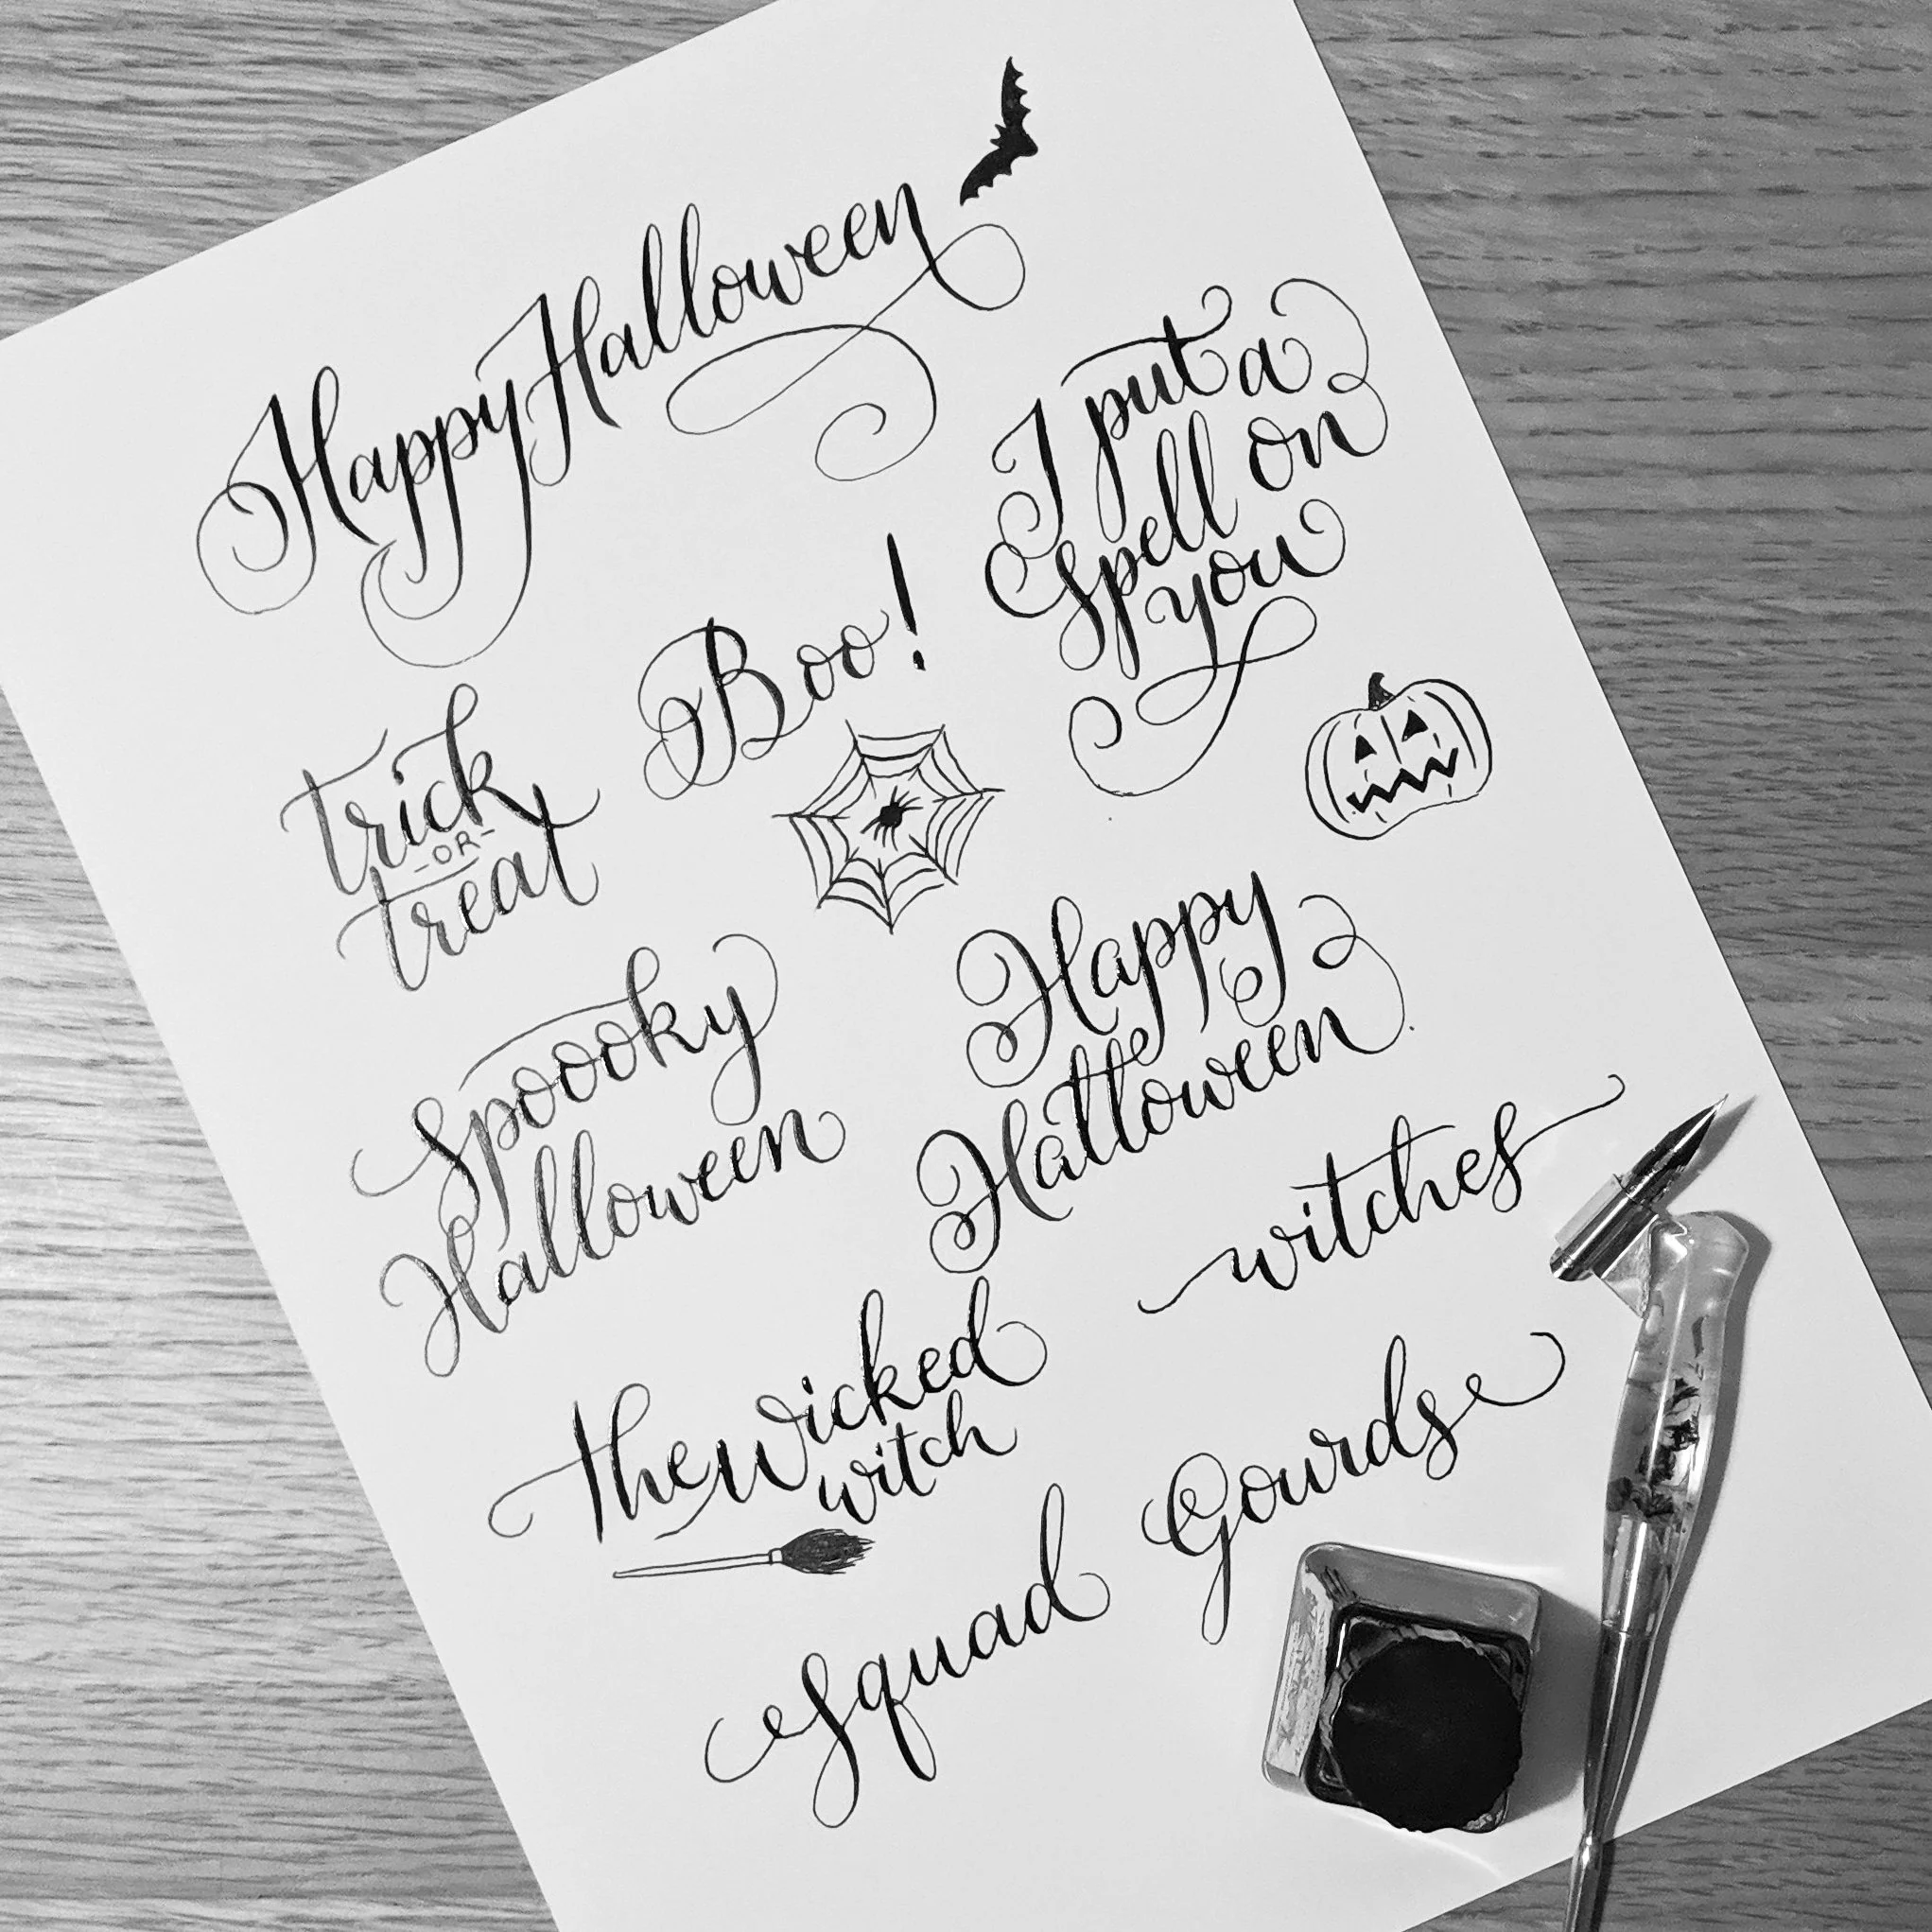 Happy Halloween
I put a
spell on
you
Boo!
trick
-OR-
treat
Spoooky
Halloween
Happy
Halloween
witches
the wicked
witch
Squad
Gourds